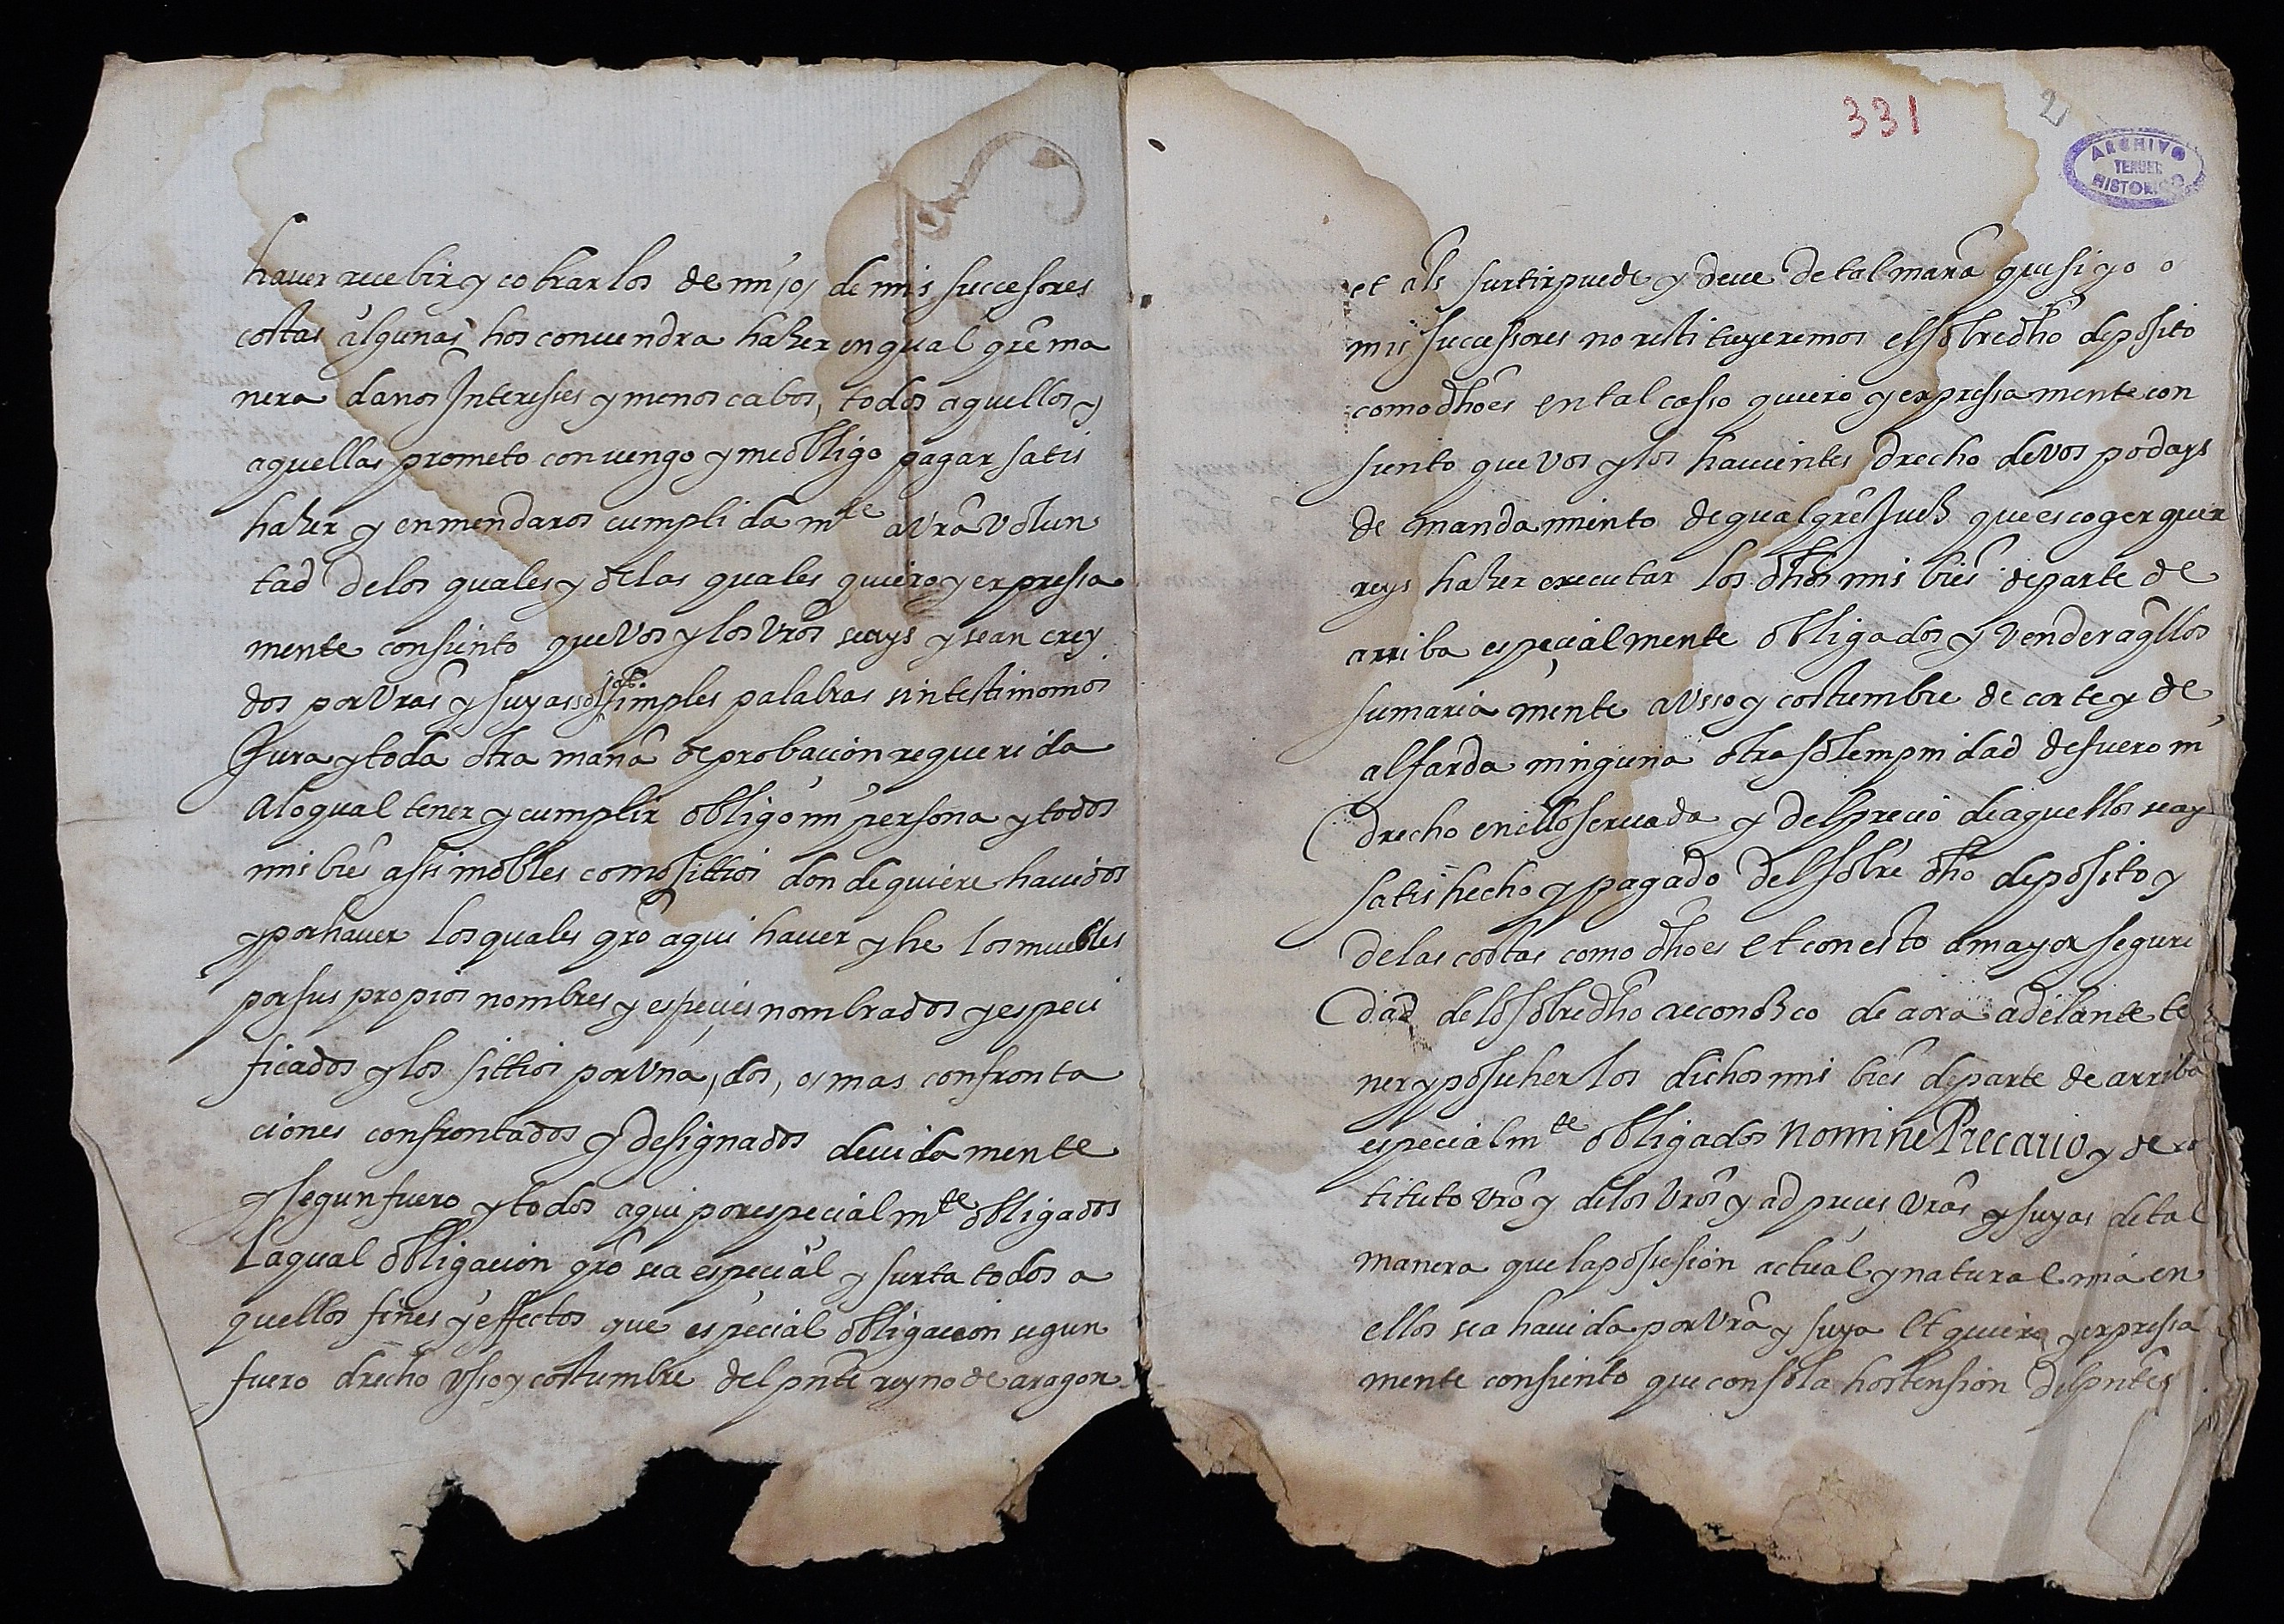 hauer recebir y cobrar los de mi, o, de mis successores
costas algunas hos conuendra hazer en qual qre ma
nera danos Interesses y menos cabos, todos aquellos y
aquellas prometo conuengo y me obligo pagar satis
hazer y enmendaros cumplidamte a vra volun
tad de los quales y de las quales quiero y expressa
mente consiento que vos y los vros seays y sean crey
dos por vras y suyas solas simples palabras sin testimonios
Jura y toda otra mana de probacion requerida
A lo qual tener y cumplir obligo mi persona y todos
mis bies assi mobles como sittios donde quiere hauidos
y por hauer los quales qro aqui hauer y he los muebles
por sus propios nombres y especies nombrados y especi
ficados y los sittios por vna, dos, o, mas confronta
ciones confrontados y designados deuidamente
y segun fuero y todos aqui por especialmte obligados
La qual obligacion qro sea especial y surta todos a
quellos fines y effectos que especial obligacion segun
fuero drecho vsso y costumbre del pnte reyno de aragon
331
2
ARCHIVO
TERUEL
HISTORICO
et als surtir puede y deue de tal mara que si yo o
mis successores no restituyeremos el sobredho deposito
como dho es en tal casso quiero y expressamente con
siento que vos y los hauientes drecho de vos podays
de mandamiento de qual qre Juez que escoger quer
reys hazer executar los dhos mis bies de parte de
arriba especialmente obligados y vender aqllos
sumariamente a vsso y costumbre de corte y de
alfarda ninguna otra solempnidad de fuero ni
drecho en ello seruada y del precio de aquellos seay
satishecho y pagado del sobre dho deposito y
de las costas como dho es et con esto a mayor seguri
dad de lo sobredho reconozco de aora adelante te
ner y posseher los dichos mis bies de parte de arriba
especialmte obligados Nomine Precario y de co
tituto vro y de los vros y ad preces vras y suyas de tal
manera que la possesion actual y natural mia en
ellos sea hauida por vra y suya et quiero y expressa
mente consiento que con sola hostension del pnte